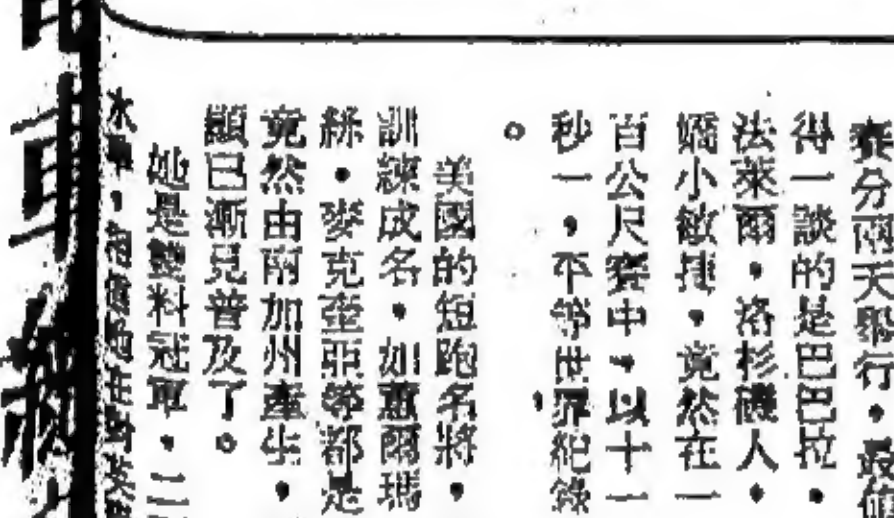 賽分兩天舉行，最值
得一談的是巴巴拉·
法萊爾，洛杉磯人，
嬌小敏捷，竟然在一
百公尺賽中，以十一
秒一，平等世界紀錄
。
美國的短跑名將，
訓練成名，如蕙爾瑪
絲·麥克奎亞等都是
竟然由南加州產生，
顯已漸見普及了。
她是雙料冠軍，二
水準，